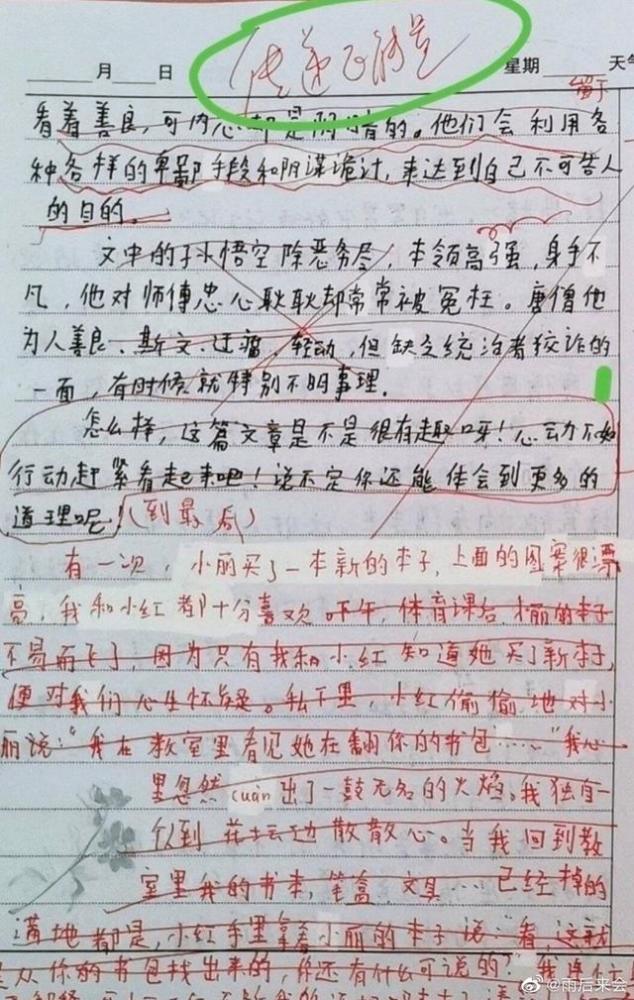 传递正能量
月 日 星期 天气
留下
看着善良，可内心却是阴暗的。他们会利用各
种各样的卑鄙手段和阴谋诡计，来达到自己不可告人
的目的。
文中的孙悟空除恶务尽，本领高强，身手不
凡，他对师傅忠心耿耿却常常被冤枉。唐僧他
为人善良、斯文、迂腐、轻动，但缺乏统治者狡诈的
一面，有时候就特别不明事理。
怎么样，这篇文章是不是很有趣呀！心动不如
行动赶紧看起来吧！说不定你还能体会到更多的
道理呢！(到最后)
有一次，小丽买了一本新的本子，上面的图案很漂
亮，我和小红都十分喜欢。下午，体育课后，小丽的本子
不易而飞了，因为只有我和小红知道她买了新本子，
便对我们心生怀疑。私下里，小红偷偷地对小
丽说："我在教室里看见她在翻你的书包……"我心
里忽然cuàn出了一鼓无名的火焰。我独自一
人到花坛边散散心。当我回到教
室里我的书本，笔盒，文具…已经掉的
满地都是，小红手里拿着小丽的本子说："看，这就
是从你的书包找出来的，你还有什么可说的？"我连
@雨后来会